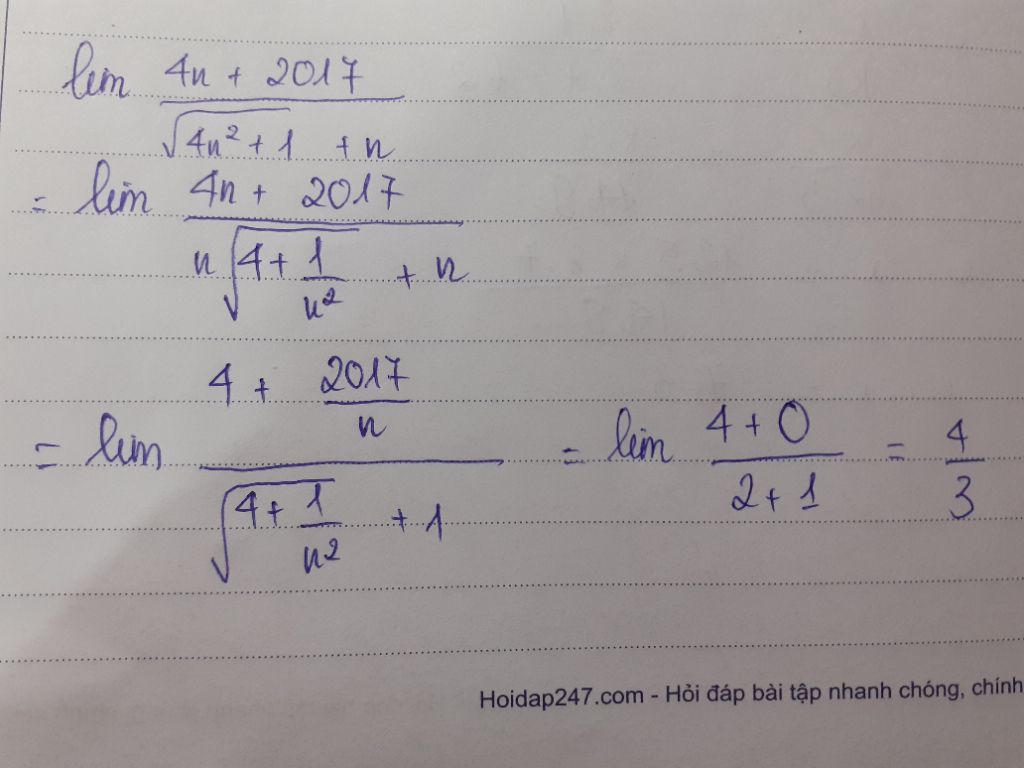 lim (4n + 2017)/(√(4n² + 1) + n)
= lim (4n + 2017)/(n√(4 + 1/n²) + n)
= lim (4 + 2017/n)/(√(4 + 1/n²) + 1) = lim (4 + 0)/(2 + 1) = 4/3
Hoidap247.com - Hỏi đáp bài tập nhanh chóng, chính